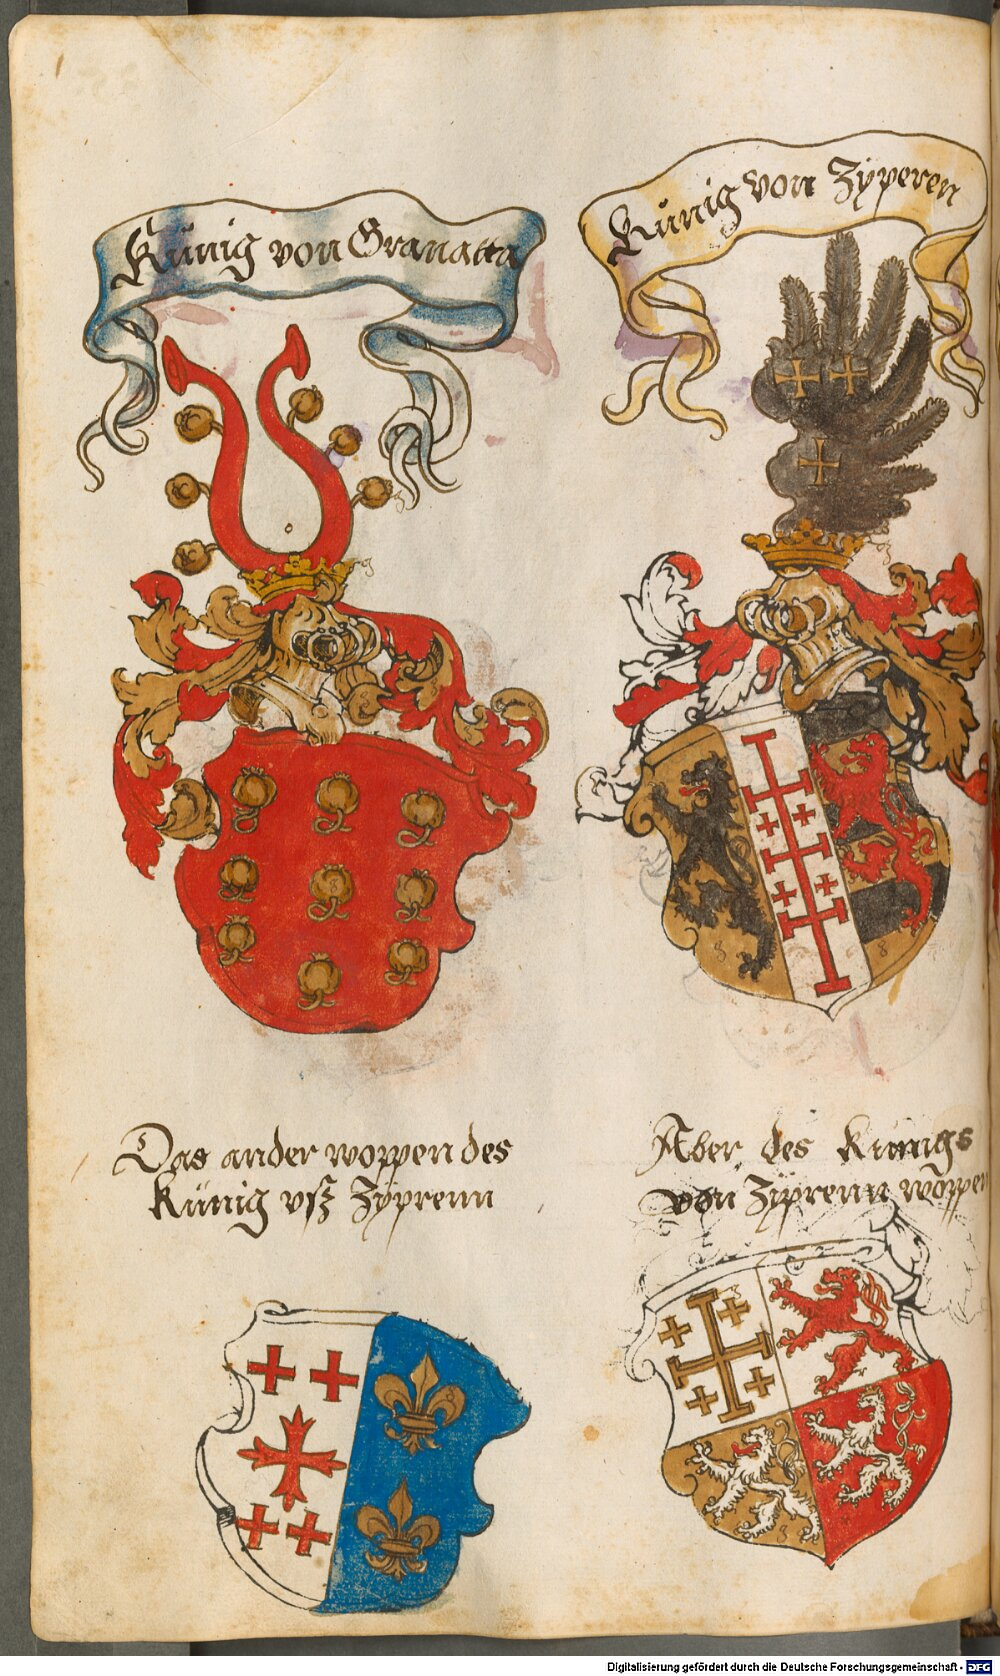 Künig von Granatta
Künig von Zÿperen
Das ander woppen des
Künig vsz Zÿprenn
Aber des Künigs
von Zÿprenn woppen
Digitalisierung gefördert durch die Deutsche Forschungsgemeinschaft - DFG